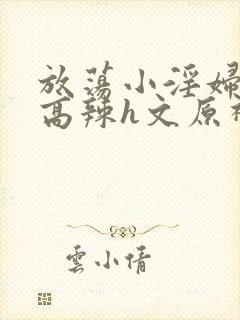 放蕩小淫婦
高辣h文原
雲小倩